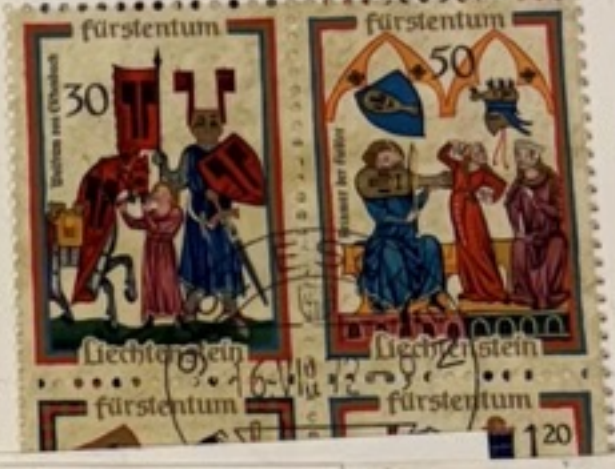 fürstentum
30
Wolfram von Eschenbach
Liechtenstein
fürstentum
50
Reinmar der Fiedler
Liechtenstein
ES
fürstentum
fürstentum
1 20